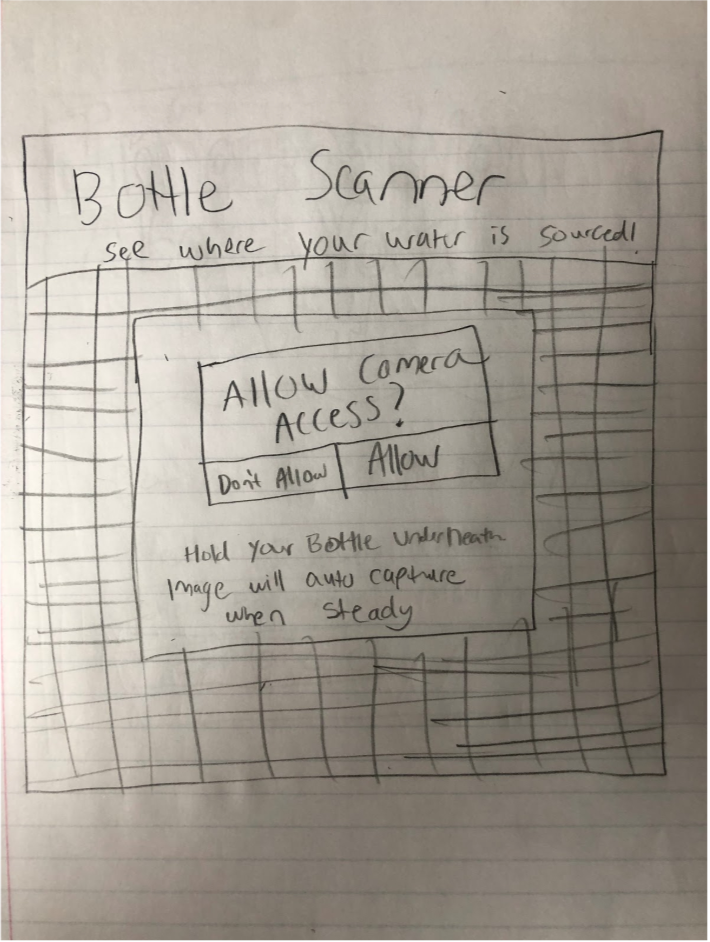 Bottle Scanner
see where your water is sourced!
Allow Camera
Access?
Don't Allow
Allow
Hold your Bottle underneath
Image will auto capture
when steady